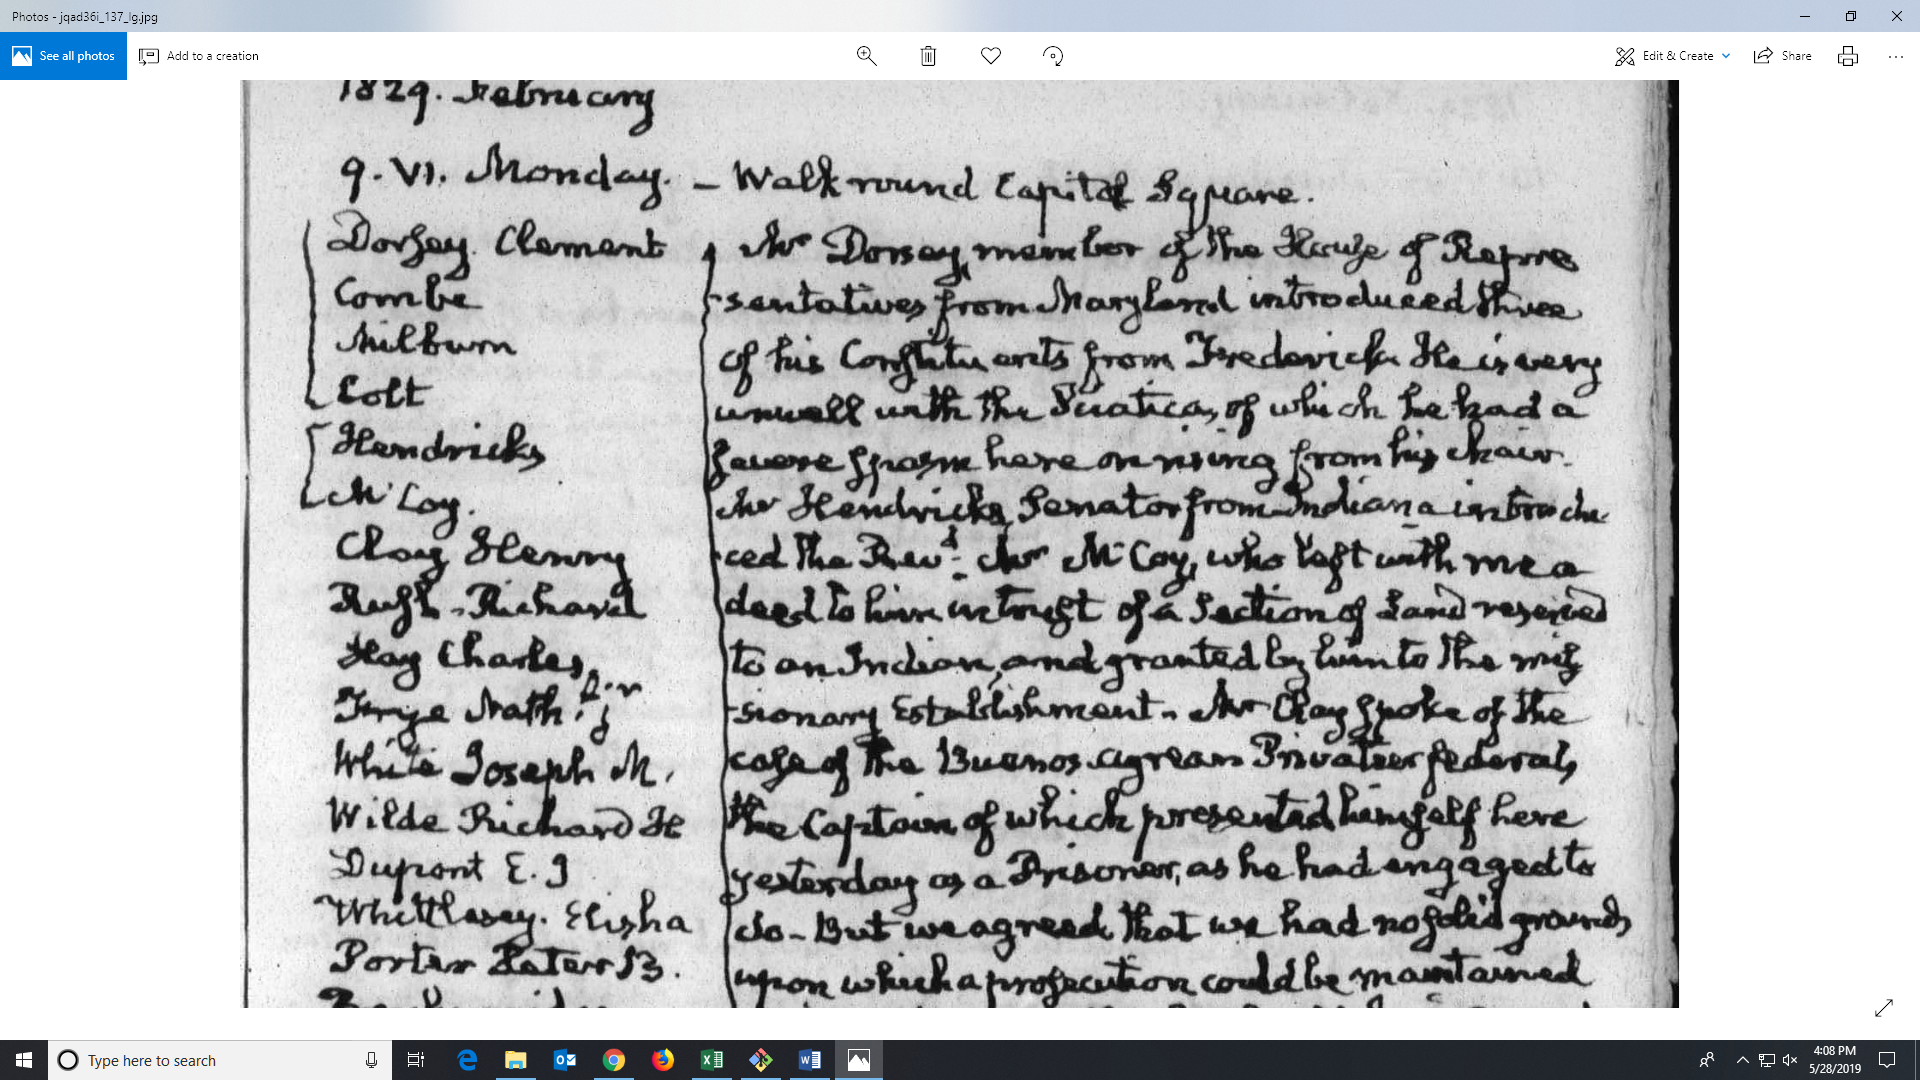 Photos - jqad36i_137_lg.jpg
See all photos
Add to a creation
Edit & Create
Share
1829. February
9. VI. Monday. – Walk round Capitol Square.
Dorsey. Clement
Combe
Milburn
Colt
Hendricks
McCoy.
Clay Henry
Rush. Richard
Hay Charles
Frye Nath.l jr
White Joseph M.
Wilde Richard H
Dupont E. I
Whittlesey. Elisha
Porter Peter B.
Mr Dorsey, member of the House of Repre
sentatives from Maryland introduced three
of his Constituents from Frederick. He is very
unwell with the Sciatica, of which he had a
severe spasm here on rising from his chair.
Mr Hendricks, Senator from Indiana introdu
ced the Revd. Mr McCoy, who left with me a
deed to him in trust of a Section of Land reserved
to an Indian, and granted by him to the mis
sionary Establishment. Mr Clay spoke of the
case of the Buenos ayrean Privateer federal,
the Captain of which presented himself here
yesterday as a Prisoner, as he had engaged to
do. But we agreed that we had no solid grounds
upon which a prosecution could be maintained
Type here to search
4:08 PM
5/28/2019